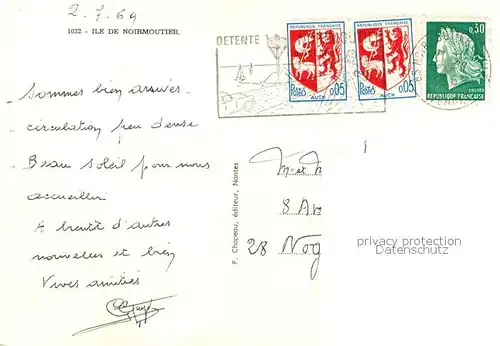 2.7.69
1032 - ILE DE NOIRMOUTIER
DETENTE
RÉPUBLIQUE FRANÇAISE
Postes 0,05
AUCH
RÉPUBLIQUE FRANÇAISE
Postes 0,05
AUCH
0,30
POSTES
REPUBLIQUE FRANÇAISE
Sommes bien arrivés
circulation peu dense
Beau soleil pour nous
accueillir
A bientôt d'autres
nouvelles et bien
Vives amitiés
F. Chapeau, éditeur, Nantes
M et M
8 Av
28 Nog
privacy protection
Datenschutz